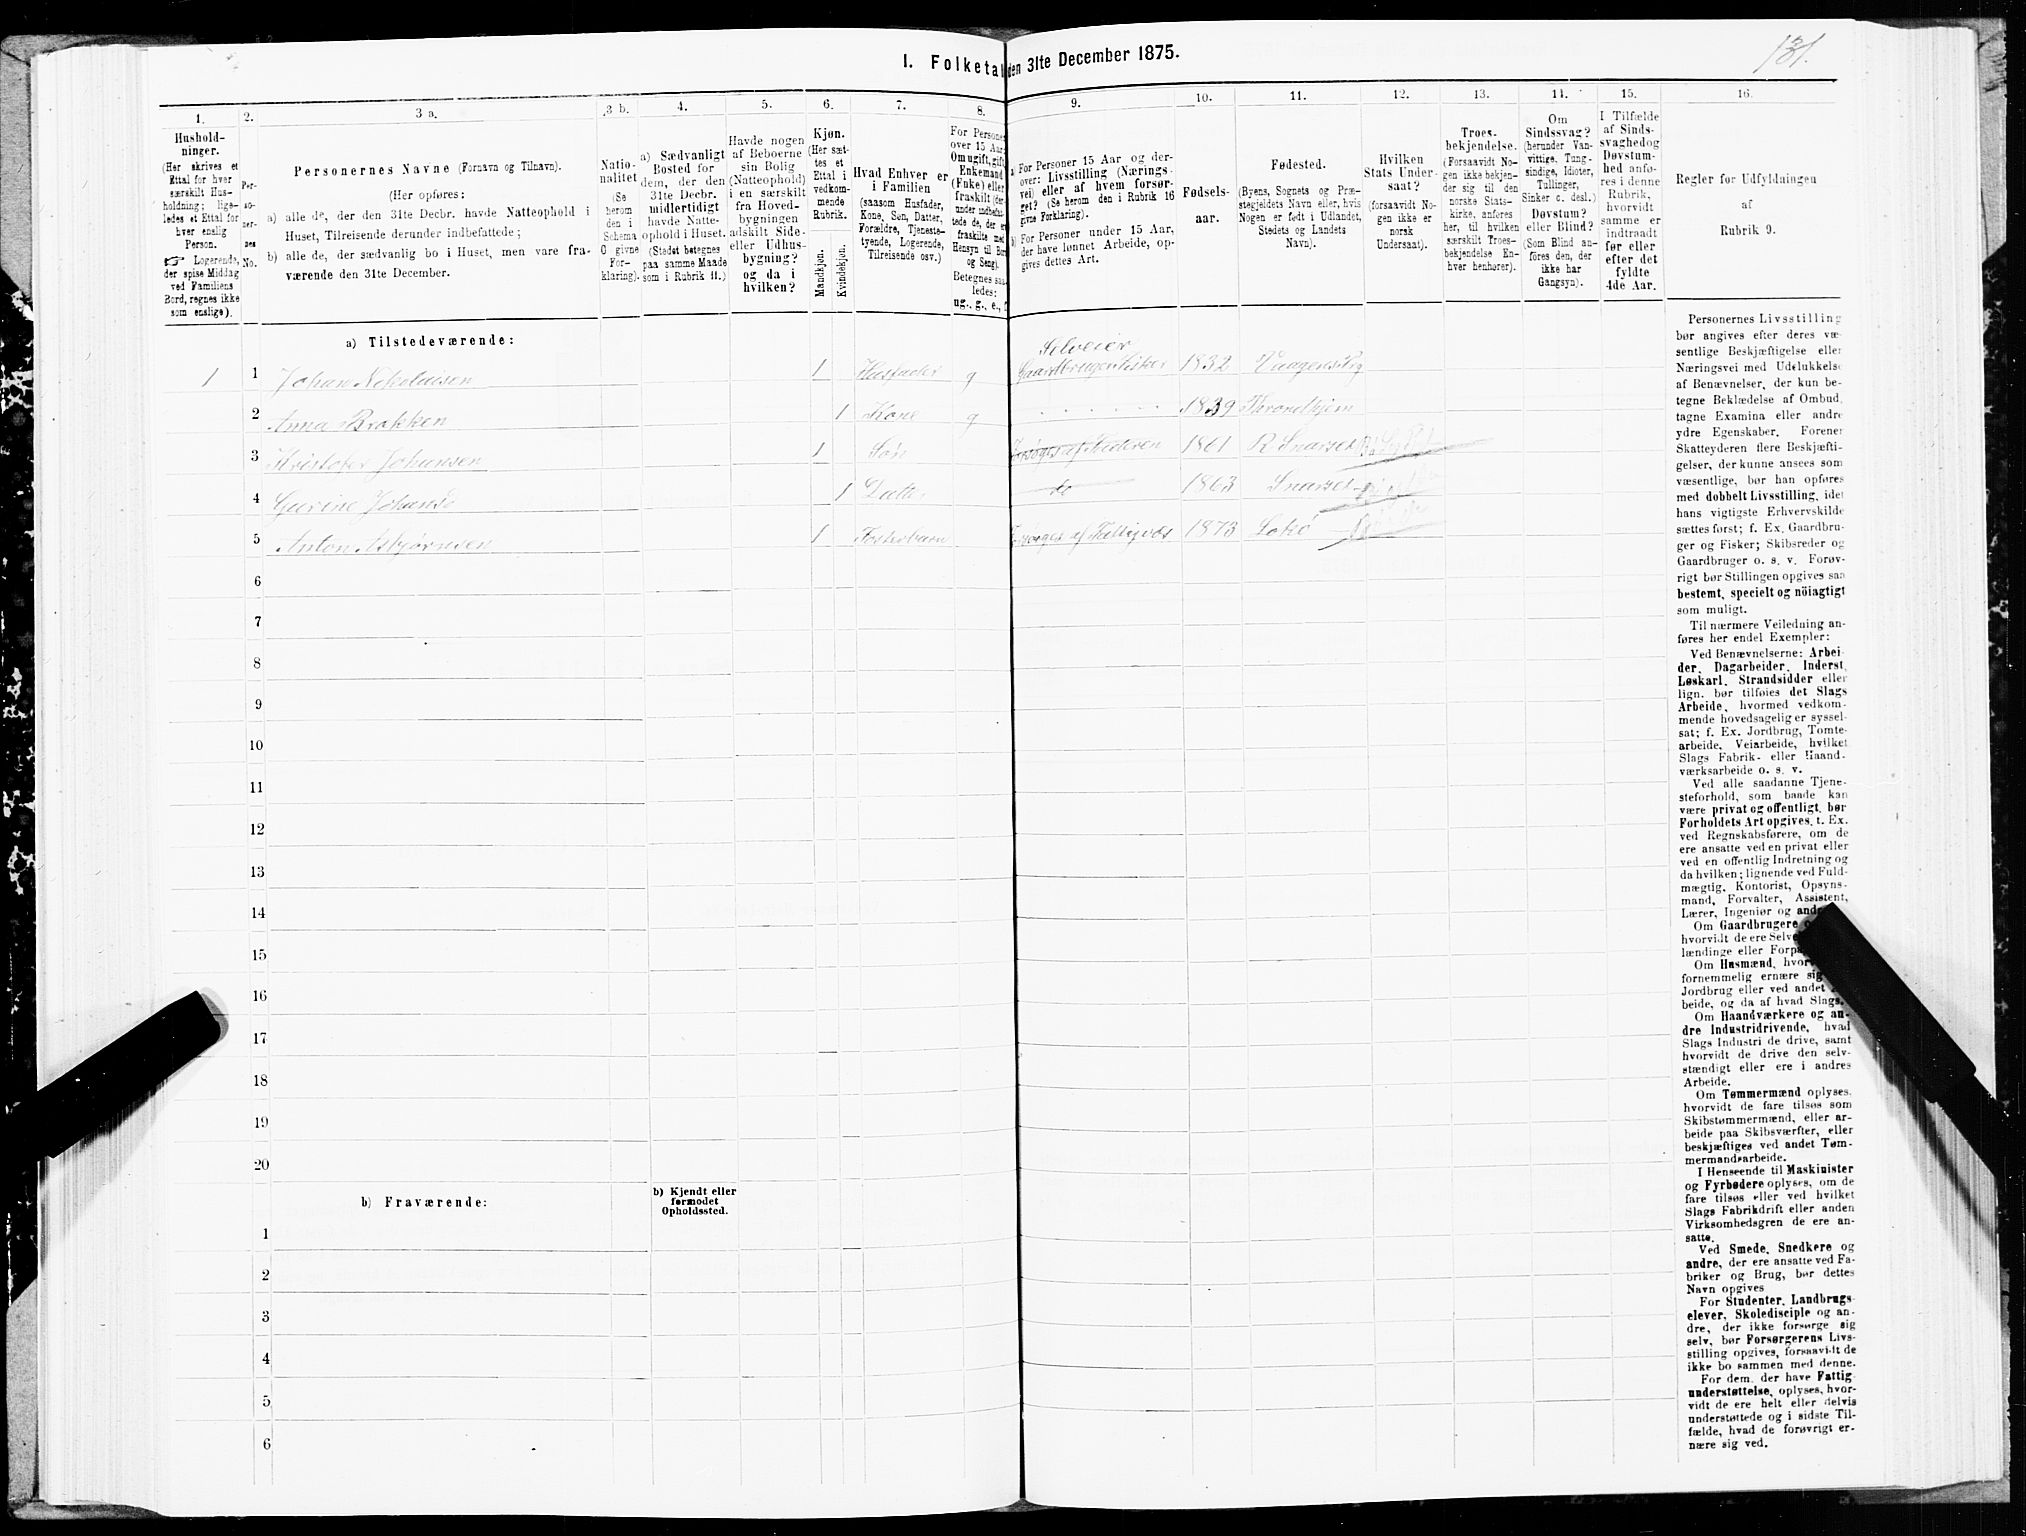 131.
I. Folketal den 31te December 1875.
1. 2. 3 a. 3 b. 4. 5. 6. 7. 8. 9. 10. 11. 12. 13. 14. 15. 16.
Hushold-
ninger.
(Her skrives et
Ettal for hver
særskilt Hus-
holdning; lige-
ledes et Ettal for
hver enslig
Person.
☞ Logerende,
der spise Middag
ved Familiens
Bord, regnes ikke
som enslige).
Per-
so-
ner-
nes
No.
Personernes Navne (Fornavn og Tilnavn).
(Her opføres:
a) alle de, der den 31te Decbr. havde Natteophold i
Huset, Tilreisende derunder indbefattede;
b) alle de, der sædvanlig bo i Huset, men vare fra-
værende den 31te December.
Natio-
nalitet
(Se
herom
den i
Schema
G givne
For-
klaring).
a) Sædvanligt
Bosted for
dem, der den
31te Decbr.
midlertidigt
havde Natte-
ophold i Huset.
(Stedet betegnes
paa samme Maade
som i Rubrik 11.)
Havde nogen
af Beboerne
sin Bolig
(Natteophold)
i en særskilt
fra Hoved-
bygningen
adskilt Side-
eller Udhus-
bygning?
og da i
hvilken?
Kjøn.
(Her sæt-
tes et
Ettal i
vedkom-
mende
Rubrik.
Mandkjøn.
Kvindekjøn.
Hvad Enhver er
i Familien
(saasom Husfader,
Kone, Søn, Datter,
Forældre, Tjeneste-
tyende, Logerende,
Tilreisende osv.)
For Personer
over 15 Aar:
Om ugift, gift,
Enkemand
(Enke) eller
fraskilt (der-
under indbefat-
tede de, der er
fraskilte med
Hensyn til Bord
og Seng).
Betegnes saa-
ledes:
ug., g., e.,
a) For Personer 15 Aar og der-
over: Livsstilling (Nærings-
vei) eller af hvem forsør-
get? (Se herom den i Rubrik 16
givne Forklaring).
b) For Personer under 15 Aar,
der have lønnet Arbeide, op-
gives dettes Art.
Fødsels-
aar.
Fødested.
(Byens, Sognets og Præ-
stegjeldets Navn eller, hvis
Nogen er født i Udlandet,
Stedets og Landets
Navn).
Hvilken
Stats Under-
saat?
(forsaavidt No-
gen ikke er
norsk
Undersaat).
Troes-
bekjendelse.
(Forsaavidt No-
gen ikke bekjen-
der sig til den
norske Stats-
kirke, anføres
her, til hvilken
særskilt Troes-
bekjendelse En-
hver henhører).
Om
Sindssvag?
(herunder Van-
vittige, Tung-
sindige, Idioter,
Tullinger,
Sinker o. desl.)
Døvstum?
eller Blind?
(Som Blind an-
føres den, der
ikke har
Gangsyn).
I Tilfælde
af Sinds-
svaghed og
Døvstum-
hed anfø-
res i denne
Rubrik,
hvorvidt
samme er
indtraadt
før eller
efter det
fyldte
4de Aar.
Regler for Udfyldningen
af
Rubrik 9.
a) Tilstedeværende:
Selveier
1 1 Johan Nikolaisen 1 Husfader g Gaardbruger Fisker 1832
2 Anna Brakken 1 Kone g 1839 Throndhjem
3 Kristofer Johansen 1 Søn Forsørges af Faderen 1861 R Snarset
4 Gurine Johansd 1 Datter do 1863 Snarset
5 Anton Asbjørnsen 1 Fosterbarn Forsørges af Fattigvæs 1873
6
7
8
9
10
11
12
13
14
15
16
17
18
19
20
b) Fraværende:
b) Kjendt eller
formodet
Opholdssted.
1
2
3
4
5
6
Personernes Livsstilling
bør angives efter deres væ-
sentlige Beskjæftigelse eller
Næringsvei med Udelukkelse
af Benævnelser, der kun be-
tegne Beklædelse af Ombud,
tagne Examina eller andre
ydre Egenskaber. Forener
Skatteyderen flere Beskjæfti-
gelser, der kunne ansees som
væsentlige, bør han opføres
med dobbelt Livsstilling, idet
hans vigtigste Erhvervskilde
sættes først; f. Ex. Gaardbru-
ger og Fisker; Skibsreder og
Gaardbruger o. s. v. Forøv-
rigt bør Stillingen opgives saa
bestemt, specielt og nöiagtigt
som muligt.
Til nærmere Veiledning an-
føres her endel Exempler:
Ved Benævnelserne: Arbei-
der, Dagarbeider, Inderst,
Løskarl, Strandsidder eller
lign. bør tilføies det Slags
Arbeide, hvormed vedkom-
mende hovedsagelig er syssel-
sat; f. Ex. Jordbrug, Tomte-
arbeide, Veiarbeide, hvilket
Slags Fabrik- eller Haand-
værksarbeide o. s. v.
Ved alle saadanne Tjene-
steforhold, som baade kan
være privat og offentligt, bør
Forholdets Art opgives, t. Ex.
ved Regnskabsførere, om de
ere ansatte ved en privat eller
ved en offentlig Indretning og
da hvilken; lignende ved Fuld-
mægtig, Kontorist, Opsyns-
mand, Forvalter, Assistent,
Lærer, Ingeniør og
Om Gaardbrugere
hvorvidt de ere
lændinge eller
Om Husmænd,
fornemmelig ernære
Jordbrug eller ved andet
beide, og da af hvad Slags.
Om Haandværkere og an-
dre Industridrivende, hvad
Slags Industri de drive, samt
hvorvidt de drive den selv-
stændigt eller ere i andres
Arbeide.
Om Tømmermænd oplyses,
hvorvidt de fare tilsøs som
Skibstømmermænd, eller ar-
beide paa Skibsværfter, eller
beskjæftiges ved andet Tøm-
mermandsarbeide.
I Henseende til Maskinister
og Fyrbødere oplyses, om de
fare tilsøs eller ved hvilket
Slags Fabrikdrift eller anden
Virksomhedsgren de ere an-
satte.
Ved Smede, Snedkere og
andre, der ere ansatte ved Fa-
briker og Brug, bør dettes
Navn opgives
For Studenter, Landbrugs-
elever, Skoledisciple og an-
dre, der ikke forsørge sig
selv, bør Forsørgerens Livs-
stilling opgives, forsaavidt de
ikke bo sammen med denne.
For dem, der have Fattig-
understøttelse, oplyses, hvor-
vidt de ere helt eller delvis
understøttede og i sidste Til-
fælde, hvad de forøvrigt er-
nære sig ved.